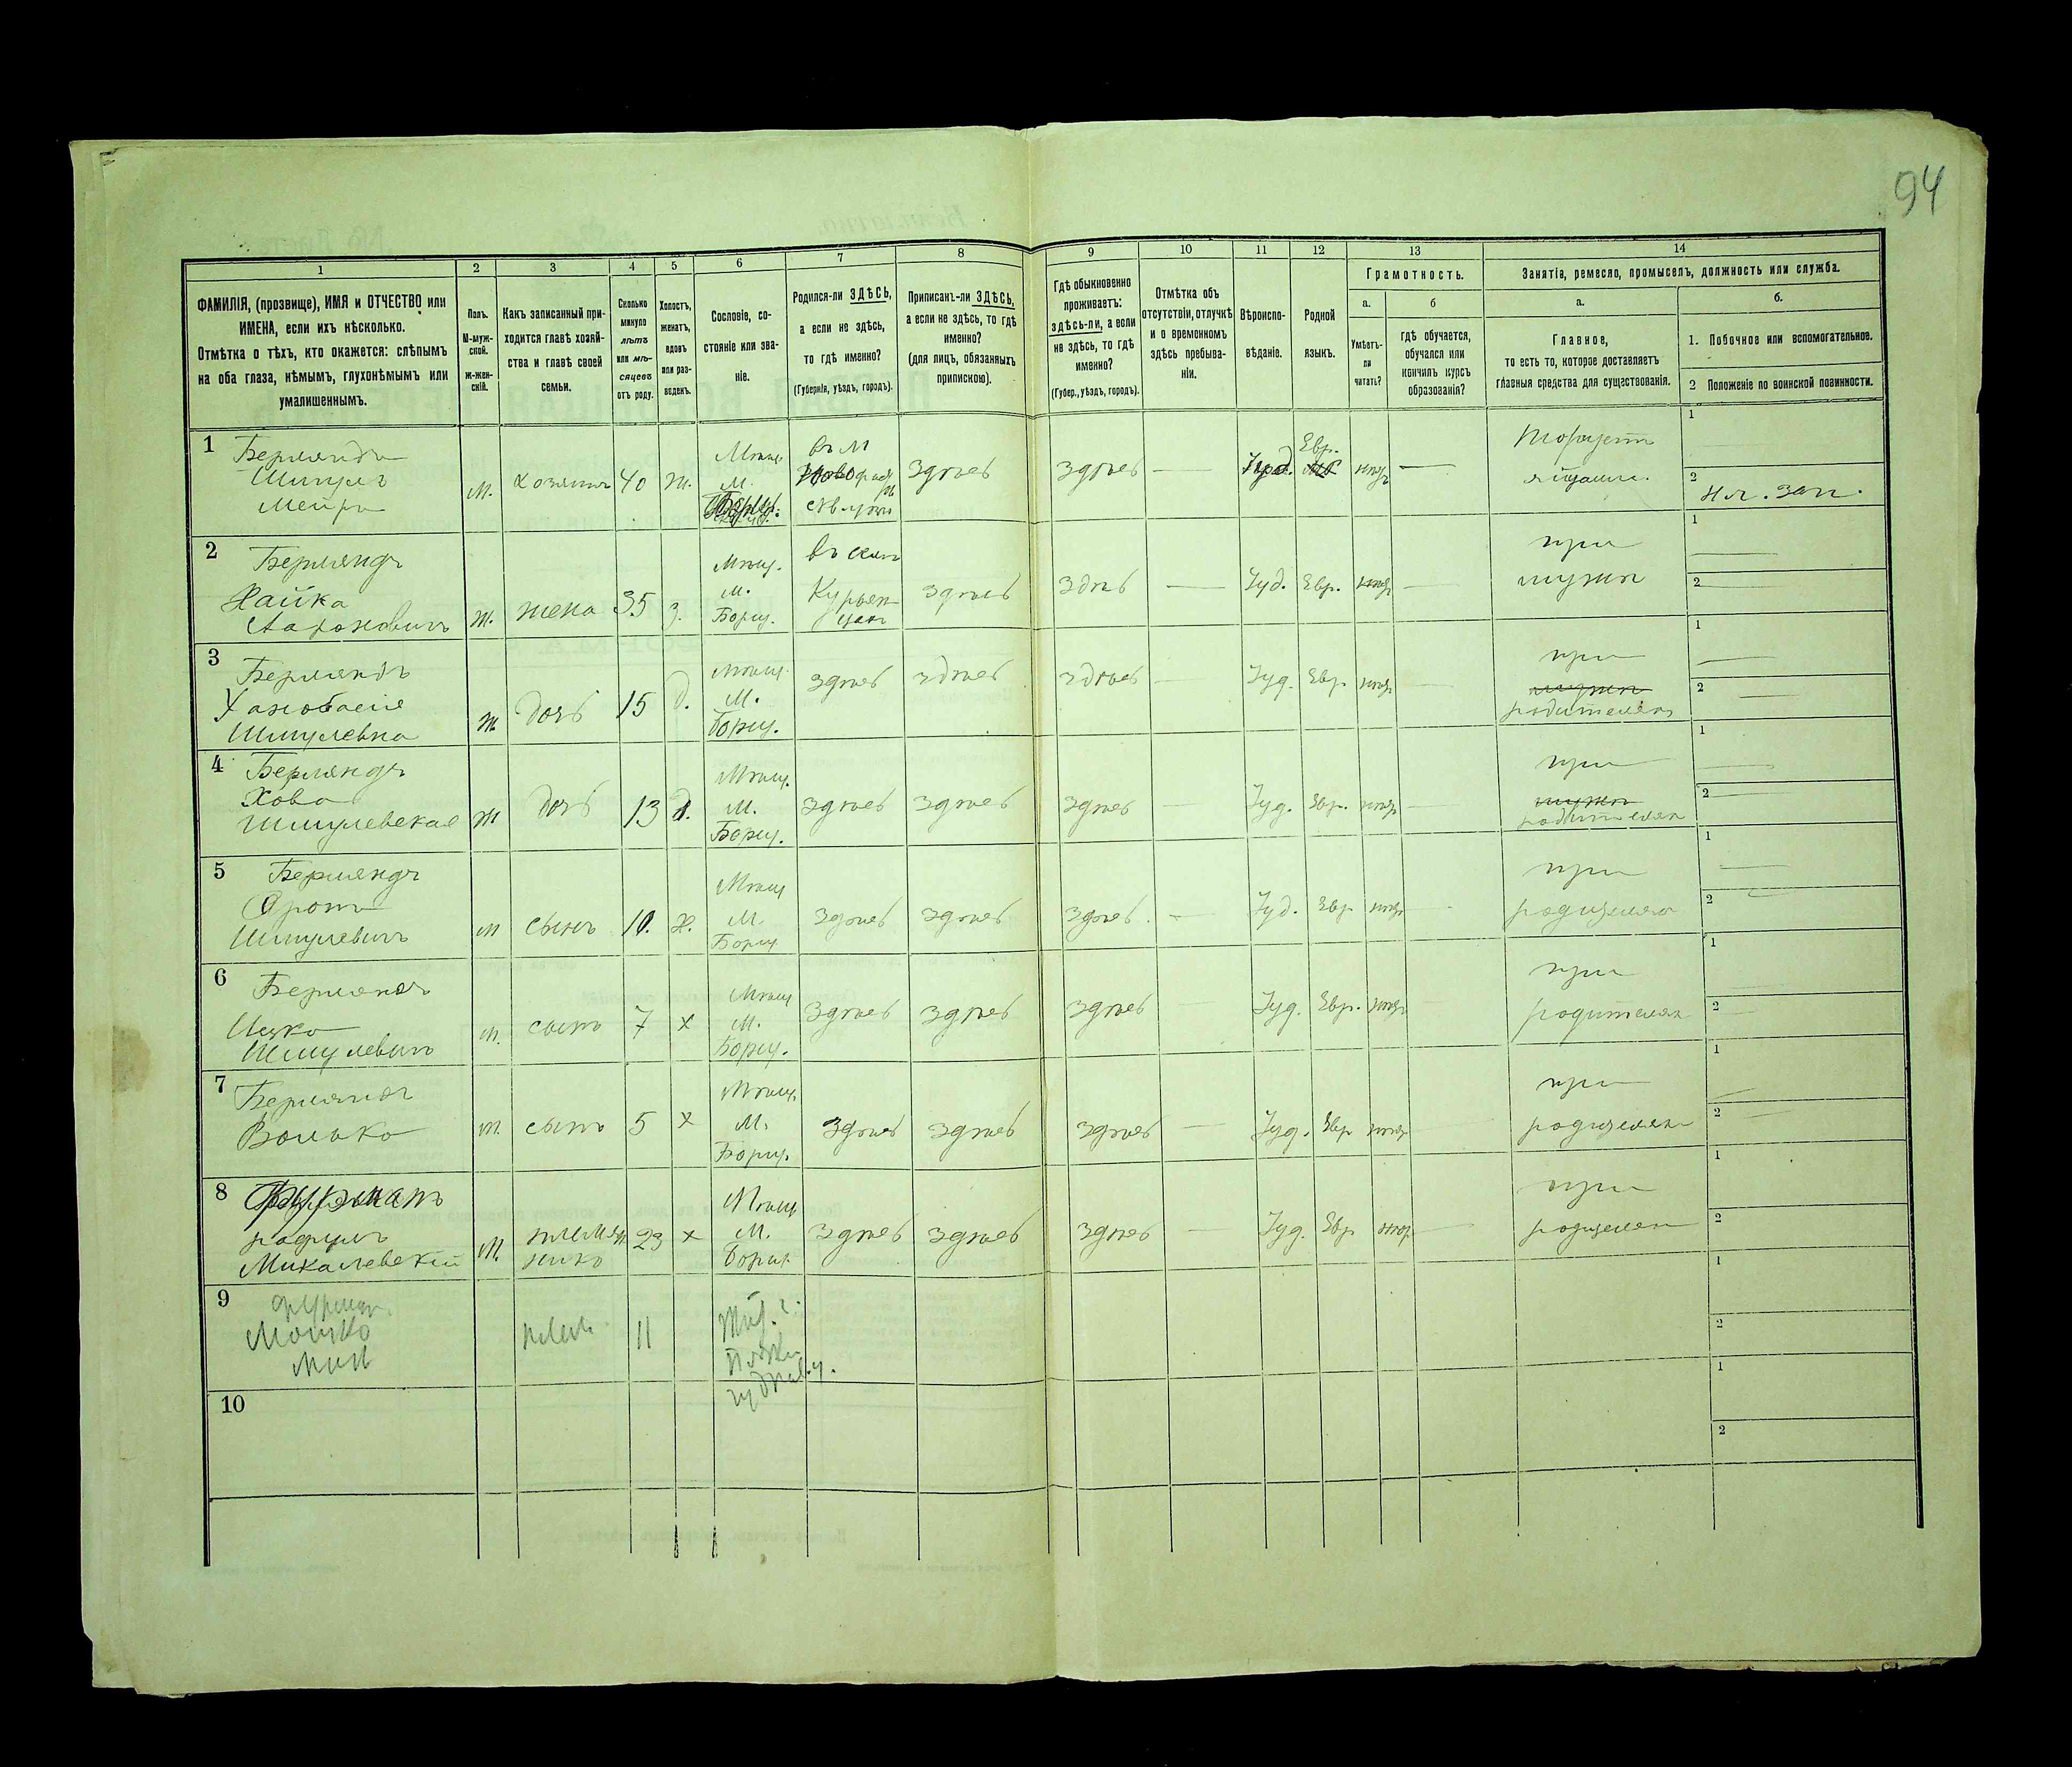 94
1
2
3
4
5
6
7
8
9
10
11
12
13
14
ФАМИЛІЯ, (прозвище), ИМЯ и ОТЧЕСТВО или
ИМЕНА, если ихъ нѣсколько.
Отмѣтка о тѣхъ, кто окажется: слѣпымъ
на оба глаза, нѣмымъ, глухонѣмымъ или
умалишеннымъ.
Полъ.
М-муж-
ской.
ж-жен-
скій.
Какъ записанный при-
ходится главѣ хозяй-
ства и главѣ своей
семьи.
Сколько
минуло
лѣтъ
или мѣ-
сяцевъ
отъ роду.
Холостъ,
женатъ,
вдовъ
или раз-
веденъ.
Сословіе, со-
стояніе или зва-
ніе.
Родился-ли ЗДѢСЬ,
а если не здѣсь,
то гдѣ именно?
(Губернія, уѣздъ, городъ).
Приписанъ-ли ЗДѢСЬ,
а если не здѣсь, то гдѣ
именно?
(для лицъ, обязанныхъ
припискою).
Гдѣ обыкновенно
проживаетъ:
здѣсь-ли, а если
не здѣсь, то гдѣ
именно?
(Губер., уѣздъ, городъ).
Отмѣтка объ
отсутствіи, отлучкѣ
и о временномъ
здѣсь пребыва-
ніи.
Вѣроиспо-
вѣданіе.
Родной
языкъ.
Грамотность.
а.
б
Умѣетъ-
ли
читать?
гдѣ обучается,
обучался или
кончилъ курсъ
образованія?
Занятія, ремесло, промыселъ, должность или служба.
а.
б.
Главное,
то есть то, которое доставляетъ
главныя средства для существованія.
1. Побочное или вспомогательное.
2 Положеніе по воинской повинности.
1
Берляндъ
Шмулъ
Меиръ
м. хозяинъ 40 ж.
Мѣщ.
м.
въ м
здѣсь здѣсь — Іуд. Евр. —
Торгуетъ
1
2
2
Берляндъ
Хайка
Ароновичъ
ж. жена 35 з.
Мѣщ.
м.
Борщ.
въ
здѣсь здѣсь — Іуд. Евр. —
при
мужѣ
1
2
3
Берляндъ
Шмулевна
ж дочь 15 д.
Мѣщ.
М.
Борщ.
здѣсь здѣсь здѣсь — Іуд. Евр. —
при
мужѣ
родителяхъ
1
2
4
Берляндъ
Хова
Шмулевская
ж дочь 13 д.
Мѣщ.
М.
Борщ.
здѣсь здѣсь здѣсь — Іуд. Евр. —
при
мужѣ
родителяхъ
1
2
5
Берляндъ
Аронъ
Шмулевичъ
м сынъ 10. х.
Мѣщ
М.
Борщ
здѣсь здѣсь здѣсь. — Іуд. Евр —
при
родителяхъ
1
2
6
Берляндъ
Ицко
Шмулевичъ
м. сынъ 7 х
Мѣщ
М.
Борщ.
здѣсь здѣсь здѣсь — Іуд. Евр. —
при
родителяхъ
1
2
7
Берляндъ
Волько
м. сынъ 5 х
Мѣщ.
М.
Борщ.
здѣсь здѣсь здѣсь — Іуд. Евр —
при
родителяхъ
1
2
8
м. племян
никъ 23 х
Мѣщ
М.
Борщ.
здѣсь здѣсь здѣсь — Іуд. Евр —
при
родителяхъ
1
2
9
Мошко
11
1
2
10
1
2